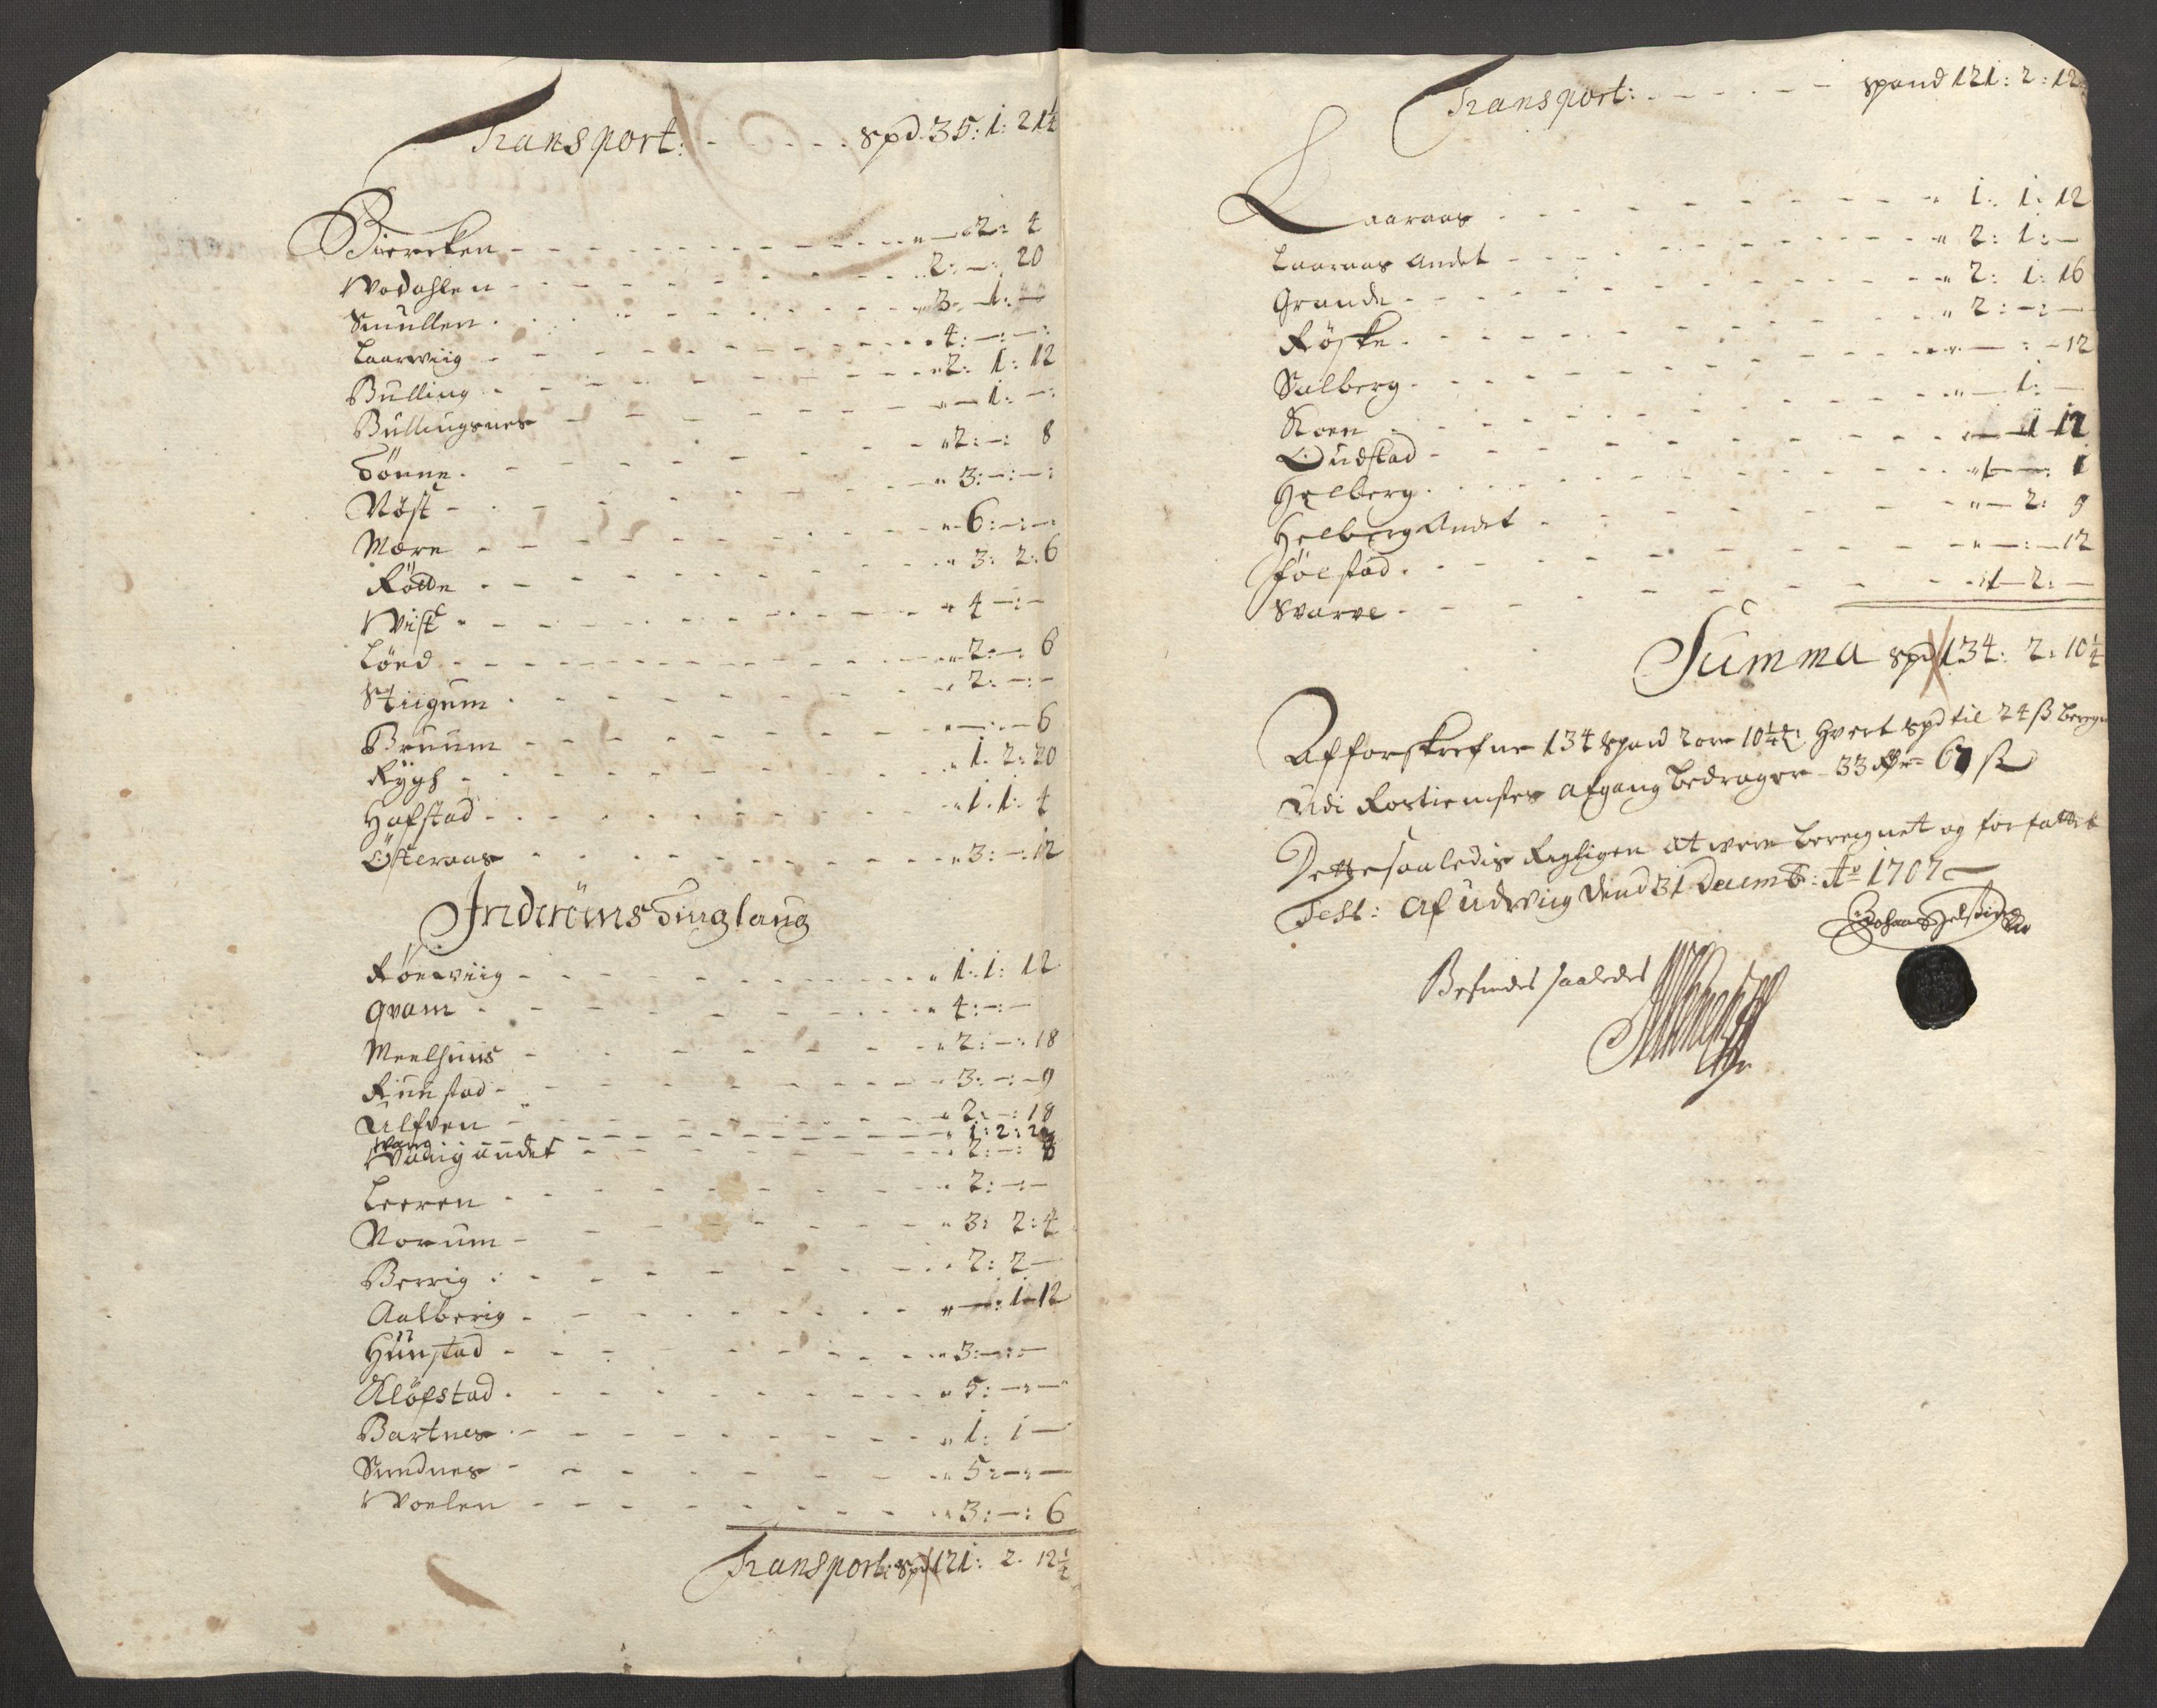 Transport: - - - - - spd. 35: 1: 21¼
Biercken - - - „ — 2: 4
Wodahlen - - - 2: —: 20
Smullen - - - „ 3: 1: —
Laarwiig - - - 4: —: —
Bulling - - - „ 2: 1: 12
Bullingsnes - - - „ — 1: —
Tönne - - - „ 2: —: 8
Nöst - - - „ 3: —: —
Mære - - - „ 6: —: —
Rödde - - - „ 3: 2: 6
Wiist - - - „ 4 —: —
Löed - - - „ 2: —: 6
Stiigum - - - „ 2: —: —
Bruum - - - „ —: — 6
Rygh - - - „ 1. 2: 20
Hafstad - - - „ 1. 1. 4
Österaas - - - „ 3: —: 12
Inderöens Tinglaug
Röewiig - - - „ 1: 1: 12
Qvam - - - „ 4: —: —
Meelhuus - - - „ 2: —: 18
Ruustad - - - „ 3: —: 9
Ulfven - - - „ 2: —: 18
Wang - - - „ 1: 2: 
Wang andet - - - „ 2: —: 
Leeren - - - „ 2: —: —
Norum - - - „ 3: 2: 4
Berrig - - - „ 2: 2 —
Aalberig - - - „ —: 1 12
Huustad - - - „ 3: —: —
Klöfstad - - - „ 5: —: —
Bartnes - - - „ 1: 1 —
Sundnes - - - „ 5: —: —
Woelen - - - „ 3: —: 6
Transport: spd 121: 2. 12¼
Transport: - - - - spand 121: 2: 12
Laaraas - - - „ 1: 1: 12
Laaraas Andet - - - „ 2: 1: —
Grande - - - „ 2: 1: 16
Röske - - - „ 2: —: —
Salberg - - - „ — : — 12
Koen - - - „ — 1: —
Oudstad - - - „ — 1 12
Helberg - - - „ 1 —: 1
Helberg Andet - - - „ — 2: 9
Föelstad - - - „ —: — 12
Svarve - - - „ 1 — 2: —
Summa spd 134: 2: 10¼
Af forskrefne 134 spand 2 ore 10¼ hvert spd til 24 ß beregn
Udi Rostienistes afgang bedrager - 33 Rdr 61 ß
Dette saaledis Rigtigen at were beregnet og forfattet
Test: Af Udwiig Dend 31 Decemb: Ao 1707
Befindes saaledes